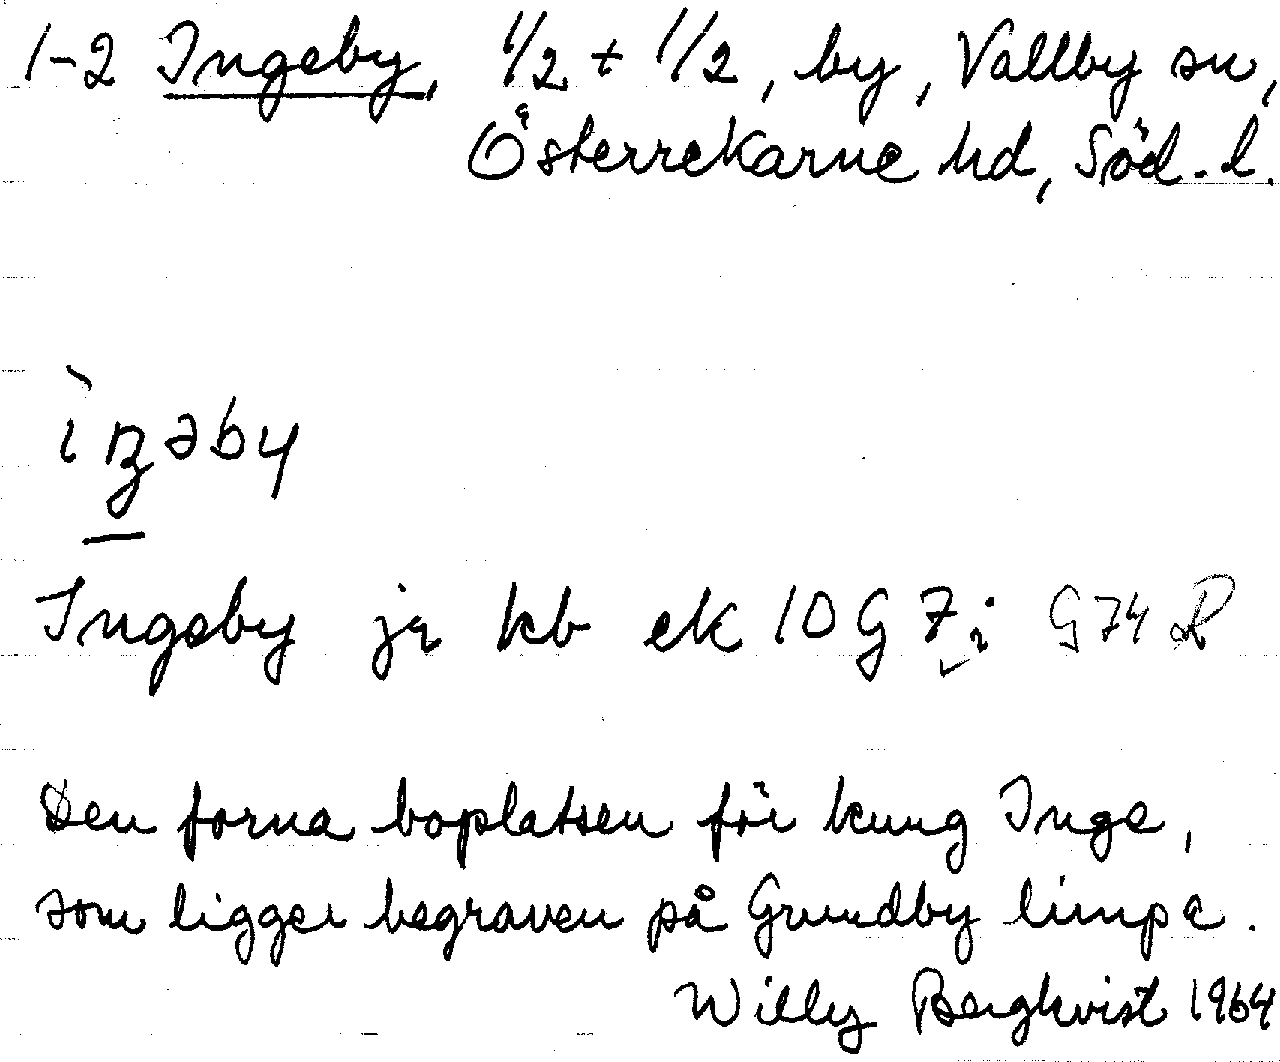 1-2 Ingeby, 1/2 + 1/2, by, Vallby sn,
Österrekarne hd, Söd. l.
ìŋəby
Ingeby jr kb ek 10 G 7 i G 74 R
Den forna boplatsen för kung Inge,
som ligger begraven på Grundby limpe.
Willy Bergkvist 1964